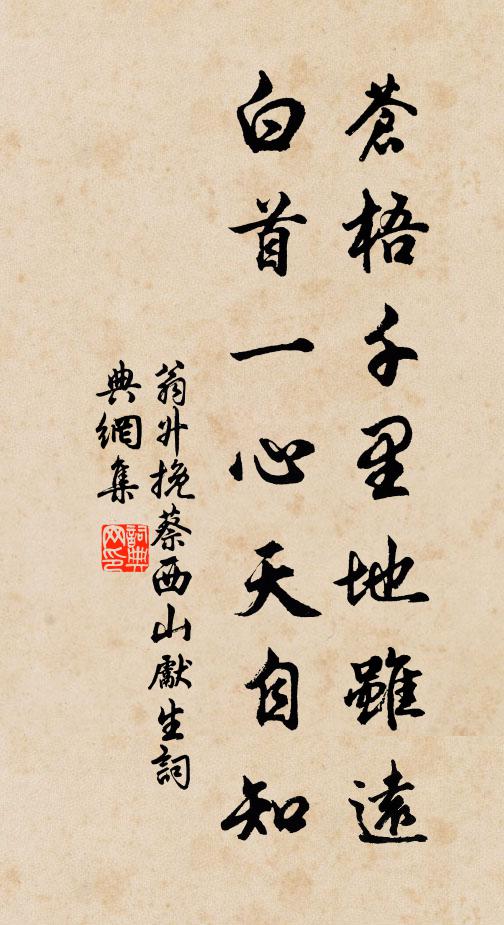 蒼梧千里地雖遠
白首一心天自知
翁升挽蔡西山獻生詞
典網集
詞典
网印